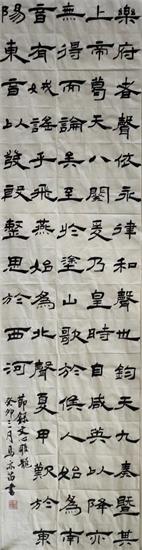 樂府者聲依永律和聲也鈞天九奏暨其
上帝葛天八闋爰乃皇時自咸英以降亦
無得而論矣至於塗山歌於候人始為南
音有娀謠乎飛燕始為北聲夏甲歎於東
陽東音以發殷整思於西河
節錄文心雕龍
癸卯三月馬書